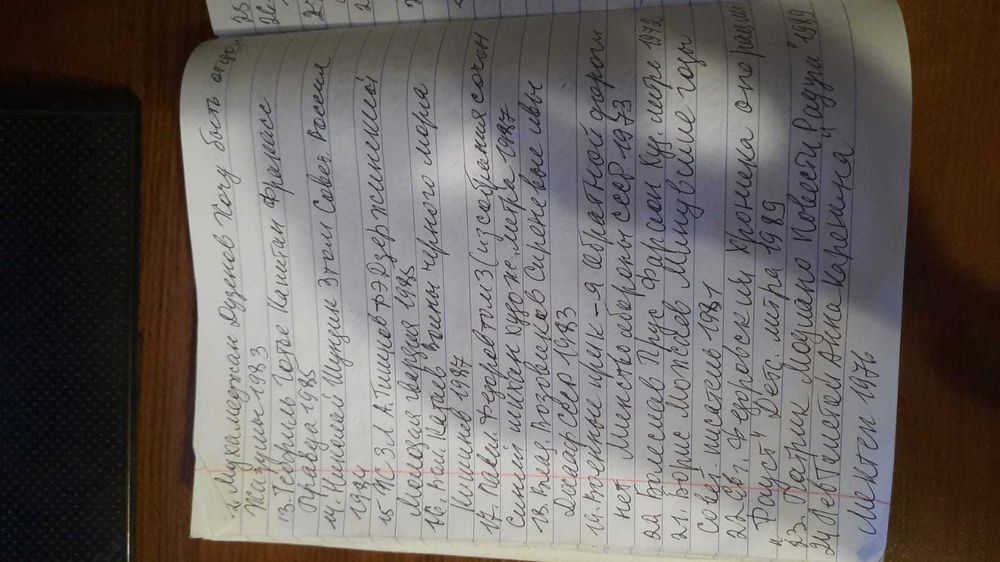 12. Мухамаджан Дузенов Хочу быть
Жазушы 1983
13. Теофиль Готье Капитан Фракасс
Правда 1985
14. Николай Шундик Этаи Совет. Россия
1984
15 ЖЗЛ А. Тишков Ф.Э Дзержинский
Молодая гвардия 1985
16. Вал Катаев волны черного моря
Кишинев 1987
17. Павел Федоров том 3 (из собрания сочин
Синий шихан худож. литра 1987
18. Влад. Возовиков Сиреневые ивы
Досааф ссср 1983
19. Военные прик-я обратной дороги
нет Минстро обороны ссср - 1973
20 Болеслав Прус Фараон Куд. литре 1972
21. Борис Можаев Минувшие годы
Совет. писатель 1981
22 Ев. Федоровский Хроника операции
"Фауст" Детс. литра 1989
23. Патрик Модиано Повести "Радуга" 1989
24 Лев Толстой Анна Каренина
Мектеп 1976
25
26